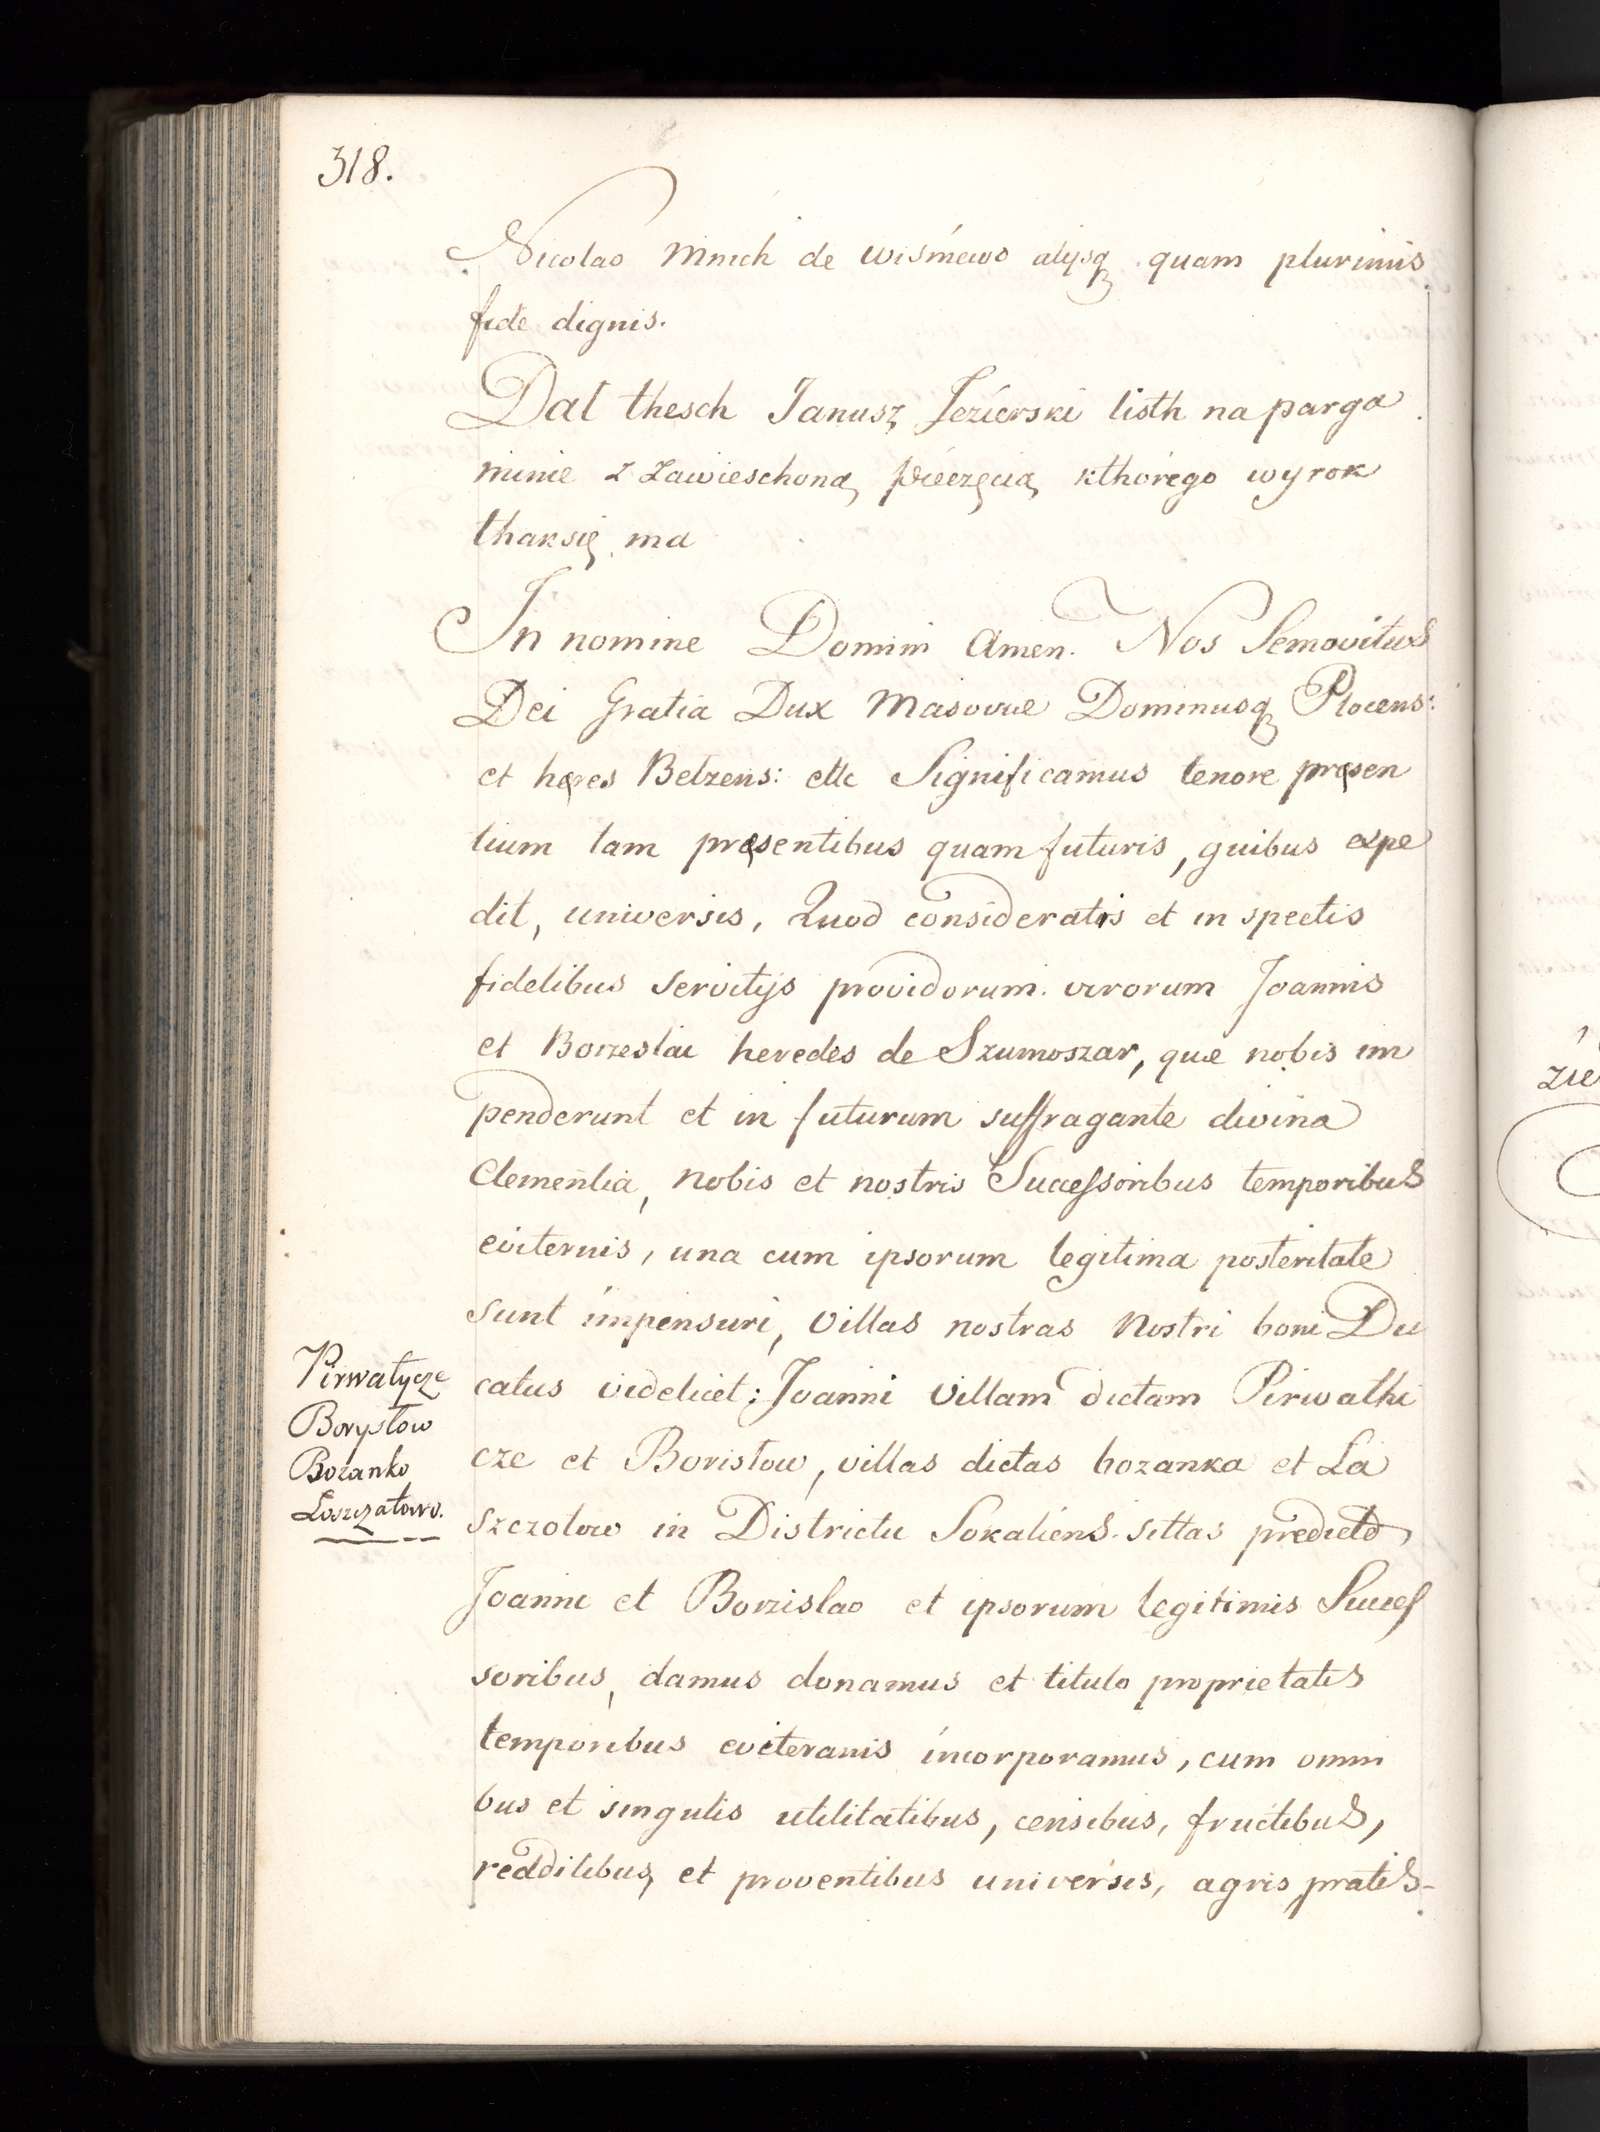 318.
Nicolao Mnich de Wiśniewo alijsq quam plurimis
fide dignis.
Dal thesch Janusz Jezierski listh na parga
minie z zawieschoną pieczęcią kthorego wyrok
thaksię ma
In nomine Domini Amen. Nos Semovitus
Dei Gratia Dux Masovie Dominusq Plocens:
et hęres Belzens: ettc Significamus tenore pręsen
tium tam pręsentibus quam futuris, quibus expe
dit, universis, Quod consideratis et in spectis
fidelibus servitijs providorum virorum Joannis
et Borzeslai heredes de Szumoszar, que nobis im
penderunt et in futurum suffragante divina
Clementia, nobis et nostris Successoribus temporibus
eviternis, una cum ipsorum legitima posteritate
sunt impensuri, Villas nostras Nostri boni Du
catus videlicet: Joanni Villam dictam Pirwathi
cze et Boristow, villas dictas bozanka et La
szczotow in Districtu Sokaliens. sittas predicto
Joanni et Borzislao et ipsorum legitimis Succes
soribus, damus donamus et titulo proprietatis
temporibus eviteranis incorporamus, cum omni
bus et singulis utilitatibus, censibus, fructibus,
redditibus, et proventibus universis, agris pratis-
Pirwatycze
Borystow
Bozanko
Loszczatowo.